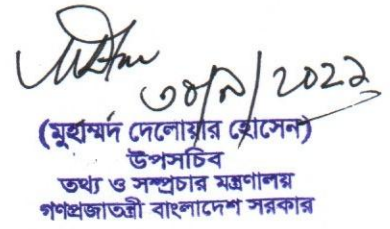 (মুহাম্মদ দেলোয়ার হোসেন)
উপসচিব
তথ্য ও সম্প্রচার মন্ত্রণালয়
গণপ্রজাতন্ত্রী বাংলাদেশ সরকার